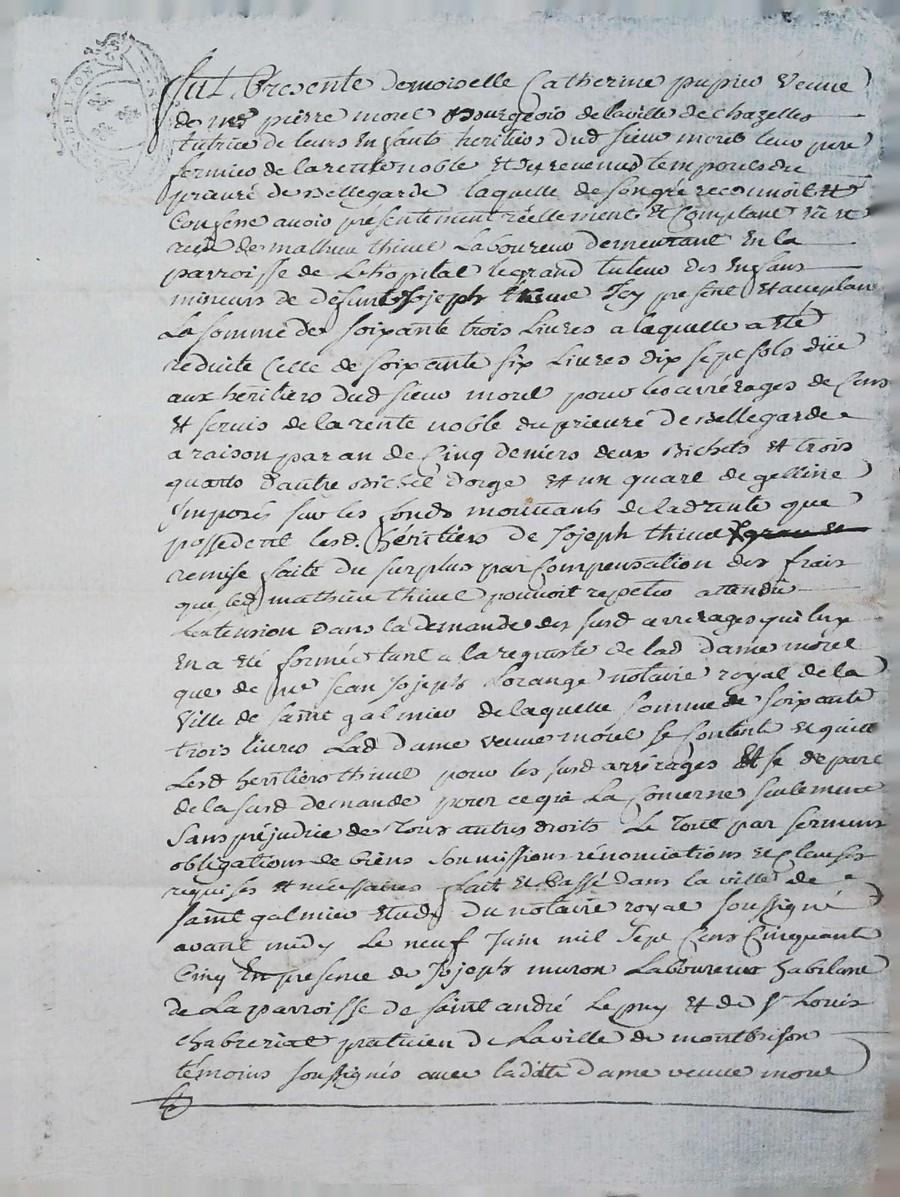 DE LYON
Fut Presente Demoiselle Catherine pupier Veuve
de mre pierre morel Bourgeois de la ville de chazelles
tutrice de leurs Enfants heritiers dud sieur morel leur pere
fermier de la rente noble Et des revenus temporels du
prieuré de Bellegarde laquelle de son gré reconnoit Et
Confesse avoir presentement réellement Et Comptant Et
receu de mathieu thivel Laboureur demeurant En la
parroisse de L'hopital le grand tuteur des Enfans
mineurs de defunt Joseph thivel Icy present Et acceptan
La somme de soixante trois Livres a laquelle a eté
reduite Celle de soixante six Livres dix sept sols düe
aux héritiers dud sieur morel pour les arrérages de Cens
Et servis de la rente noble du prieuré de Bellegarde
a raison par an de Cinq deniers deux Bichets Et trois
quarts d'autre Bichet d'orge Et un quart de gelline
Imposés sur les fonds mouvants de lad rente que
possedent lesd. héritiers de Joseph thivel
remise faite du surplus par Compensation des frais
que led mathieu thivel pouvoit repeter attendu
Lextension dans la demande des susd arrerages qui luy
En a eté formée tant a la requeste de lad dame morel
que de me Jean Joseph Lorange notaire royal de la
Ville de saint galmier de laquelle somme de soixante
trois livres Lad dame veuve morel se Contente Et quitte
Lesd heritiers thivel pour les susd arrérages Et se depart
de la susd demande pour ce qui La Concerne seulement
Sans préjudice de tous autres droits Le tout par serment
obligations de biens soumissions rénonciations Et clauses
requises Et nécessaires fait Et Passé dans la ville de
saint galmier Etude du notaire royal soussigné
avant midy Le neuf Juin mil Sept Cens Cinquante
Cinq En presence de Joseph muron Laboureur habitant
de La parroisse de saint andré Le puy Et de Sr Louis
chabreriat praticien de La ville de montbrison
témoins soussignés avec laditte dame veuve morel